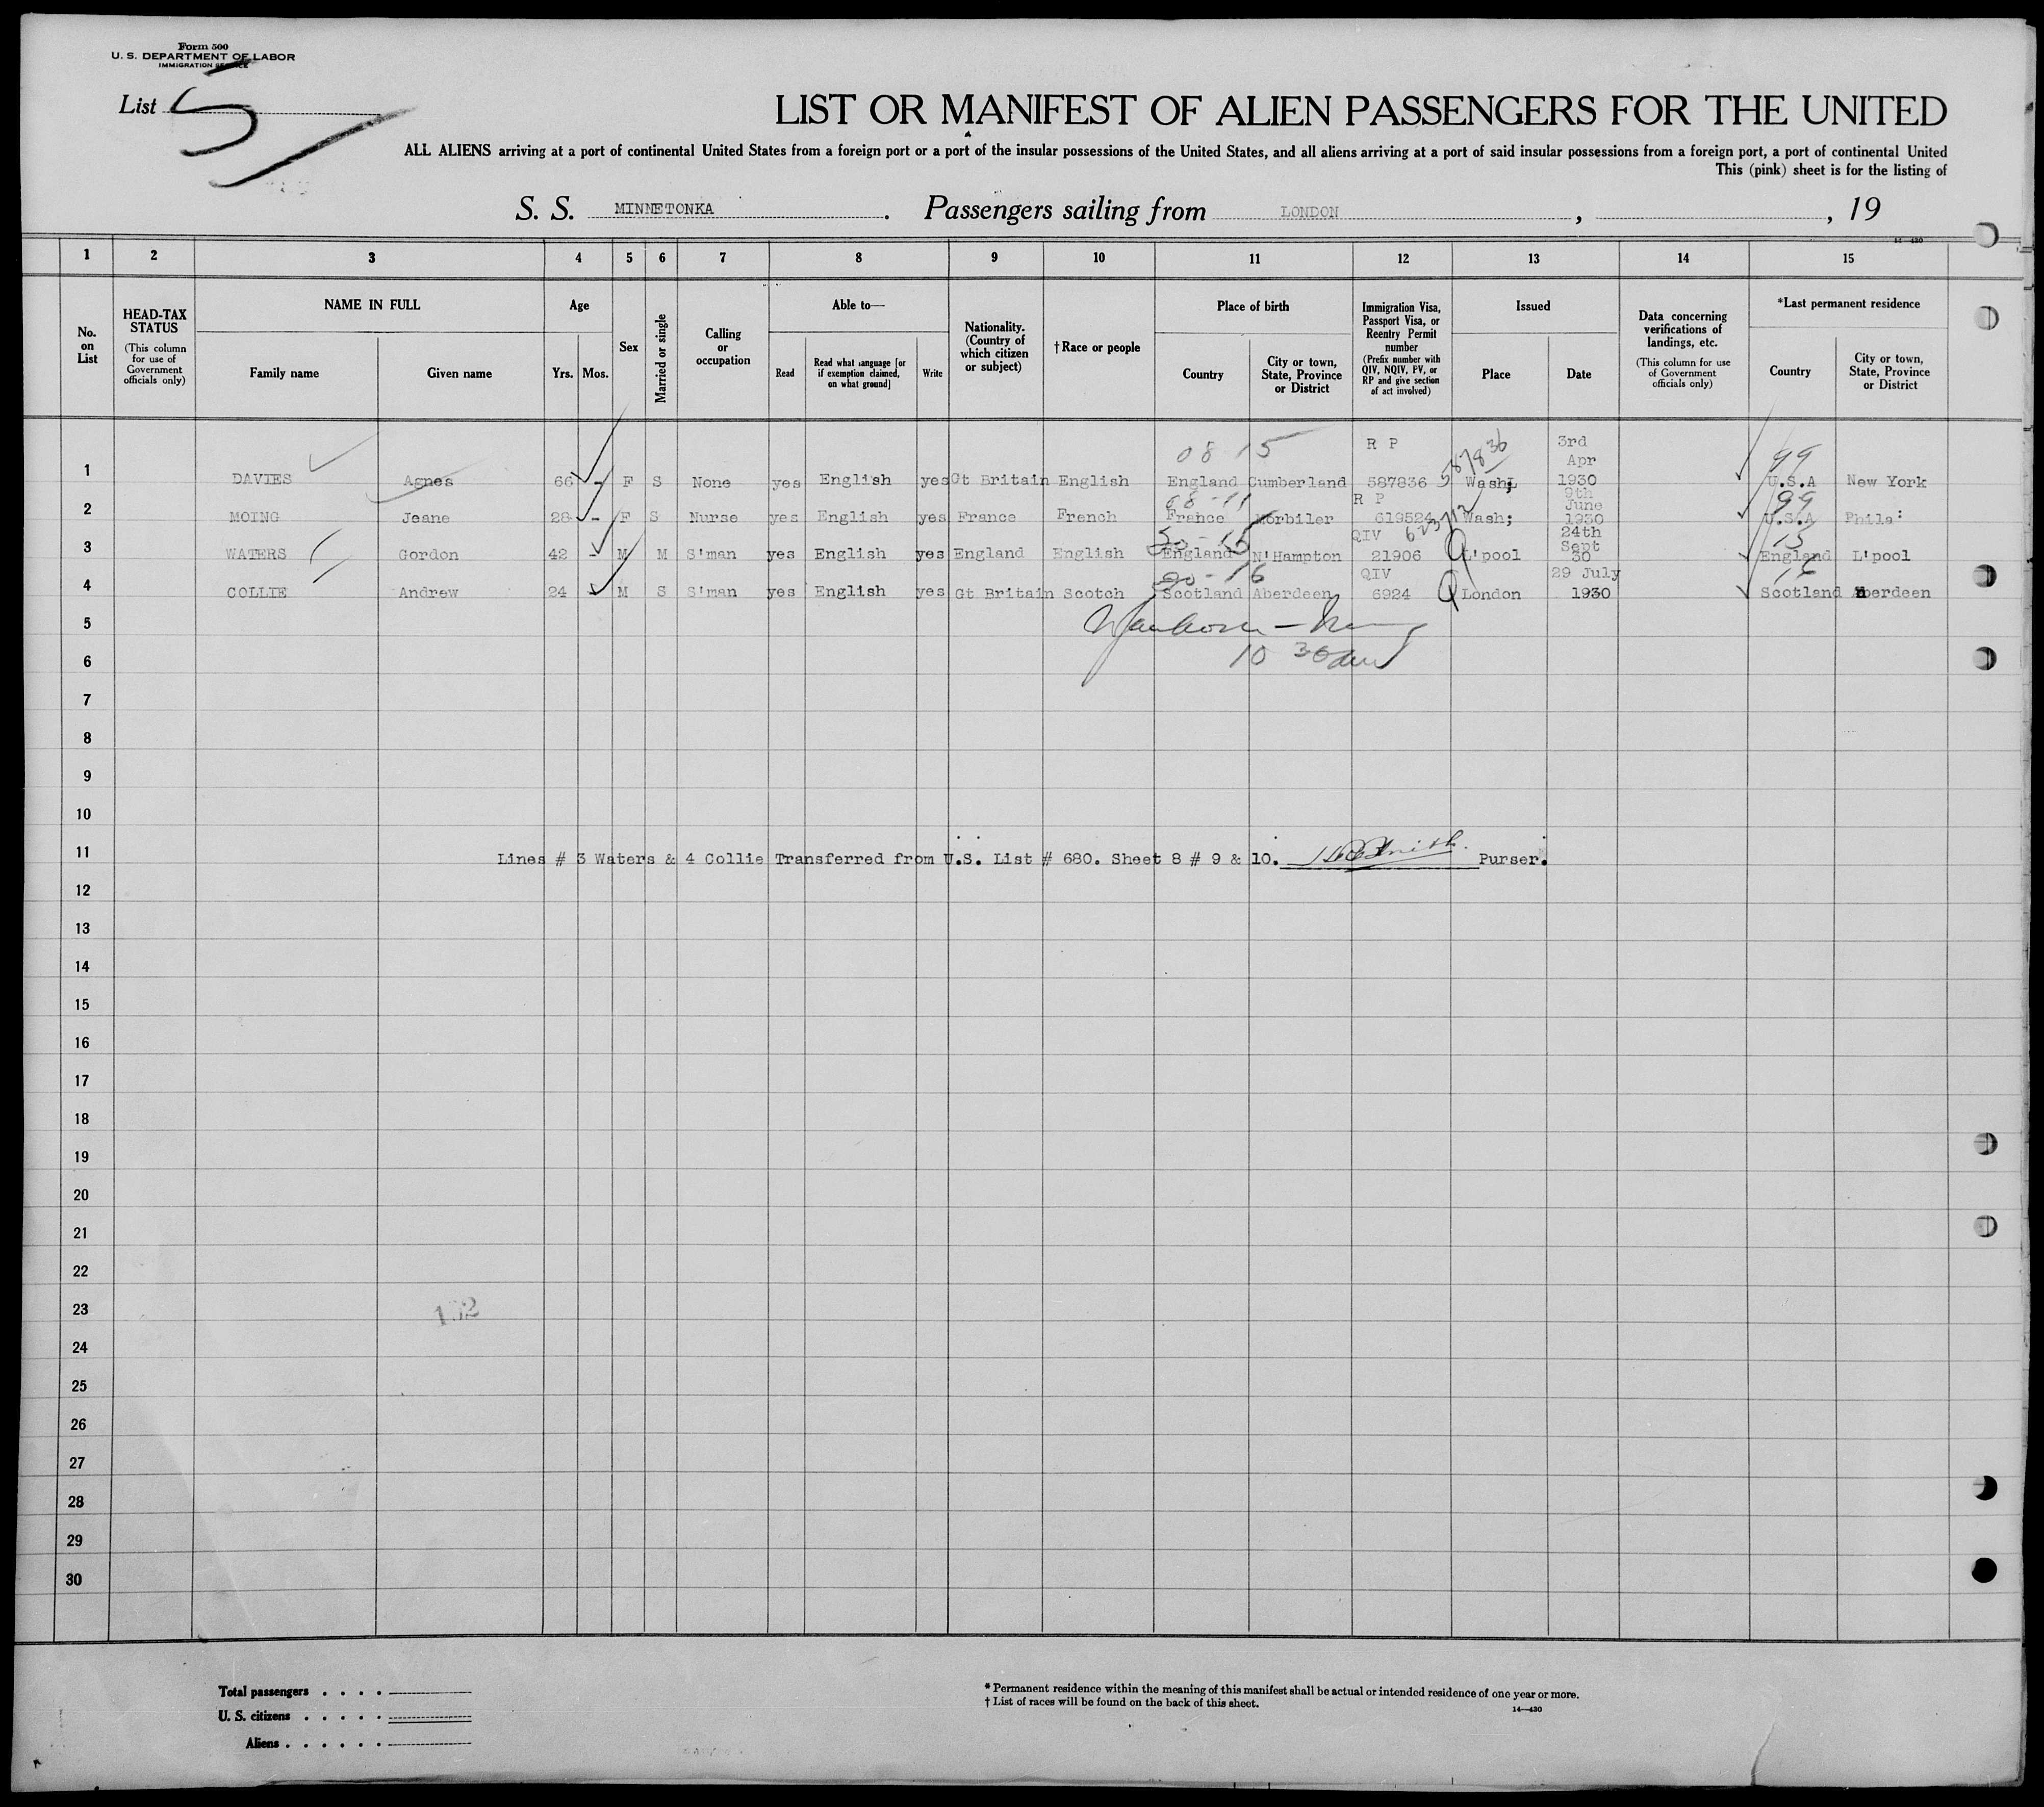 Form 500
U. S. DEPARTMENT OF LABOR
IMMIGRATION SERVICE
List 5
LIST OR MANIFEST OF ALIEN PASSENGERS FOR THE UNITED
ALL ALIENS arriving at a port of continental United States from a foreign port or a port of the insular possessions of the United States, and all aliens arriving at a port of said insular possessions from a foreign port, a port of continental United
This (pink) sheet is for the listing of
S. S. MINNETONKA. Passengers sailing from LONDON, , 19
14-430
1 2 3 4 5 6 7 8 9 10 11 12 13 14 15
No. on List
HEAD-TAX STATUS (This column for use of Government officials only)
NAME IN FULL
Family name Given name
Age
Yrs. Mos.
Sex
Married or single
Calling or occupation
Able to—
Read Read what language [or if exemption claimed, on what ground] Write
Nationality. (Country of which citizen or subject)
†Race or people
Place of birth
Country City or town, State, Province or District
Immigration Visa, Passport Visa, or Reentry Permit number (Prefix number with QIV, NQIV, PV, or RP and give section of act involved)
Issued
Place Date
Data concerning verifications of landings, etc. (This column for use of Government officials only)
*Last permanent residence
Country City or town, State, Province or District
08 15 R P 587836 3rd Apr 99
1 DAVIES Agnes 66 - F S None yes English yes Gt Britain English England Cumberland 587836 Wash; 1930 U.S.A New York
08-11 R P 9th June 99
2 MOING Jeane 28 - F S Nurse yes English yes France French France Morbiler 619524 Wash; 1930 U.S.A Phila:
QIV 24th Sept 15
3 WATERS Gordon 42 - M M S'man yes English yes England English England N'Hampton 21906 L'pool 30 England L'pool
20-16 QIV 29 July 16
4 COLLIE Andrew 24 M S S'man yes English yes Gt Britain Scotch Scotland Aberdeen 6924 London 1930 Scotland Aberdeen
5
6 10 30am
7
8
9
10
11 Lines # 3 Waters & 4 Collie Transferred from U.S. List # 680. Sheet 8 # 9 & 10. Smith. Purser.
12
13
14
15
16
17
18
19
20
21
22
23 132
24
25
26
27
28
29
30
Total passengers . . . .
U. S. citizens . . . . .
Aliens . . . . . .
* Permanent residence within the meaning of this manifest shall be actual or intended residence of one year or more.
† List of races will be found on the back of this sheet.
14—430